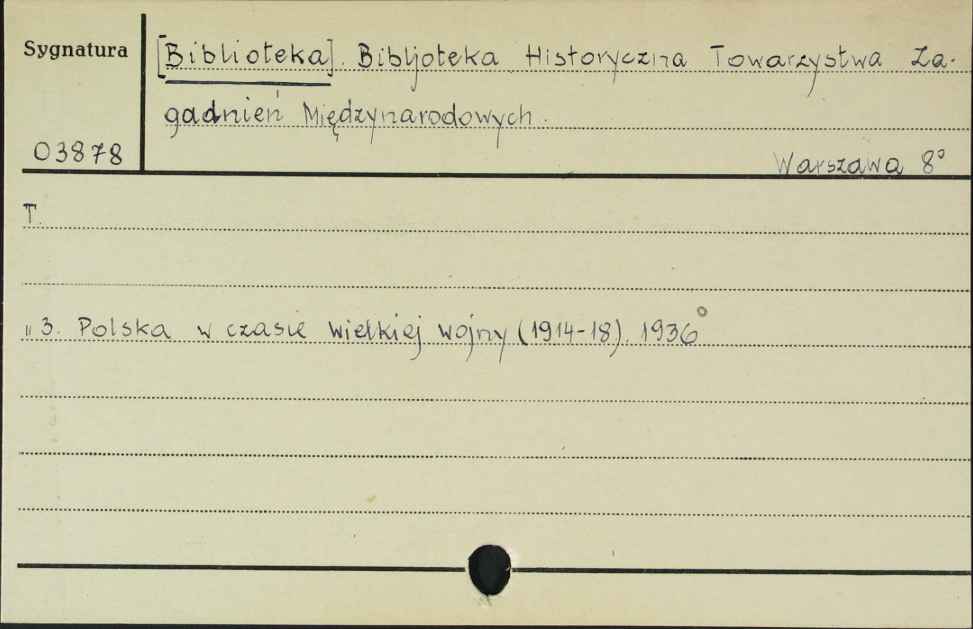 Sygnatura
[Biblioteka]. Bibljoteka Historyczna Towarzystwa Za-
gadnień Międzynarodowych.
03878
Warszawa 8°
T.
" 3. Polska w czasie wielkiej wojny (1914-18). 1936°